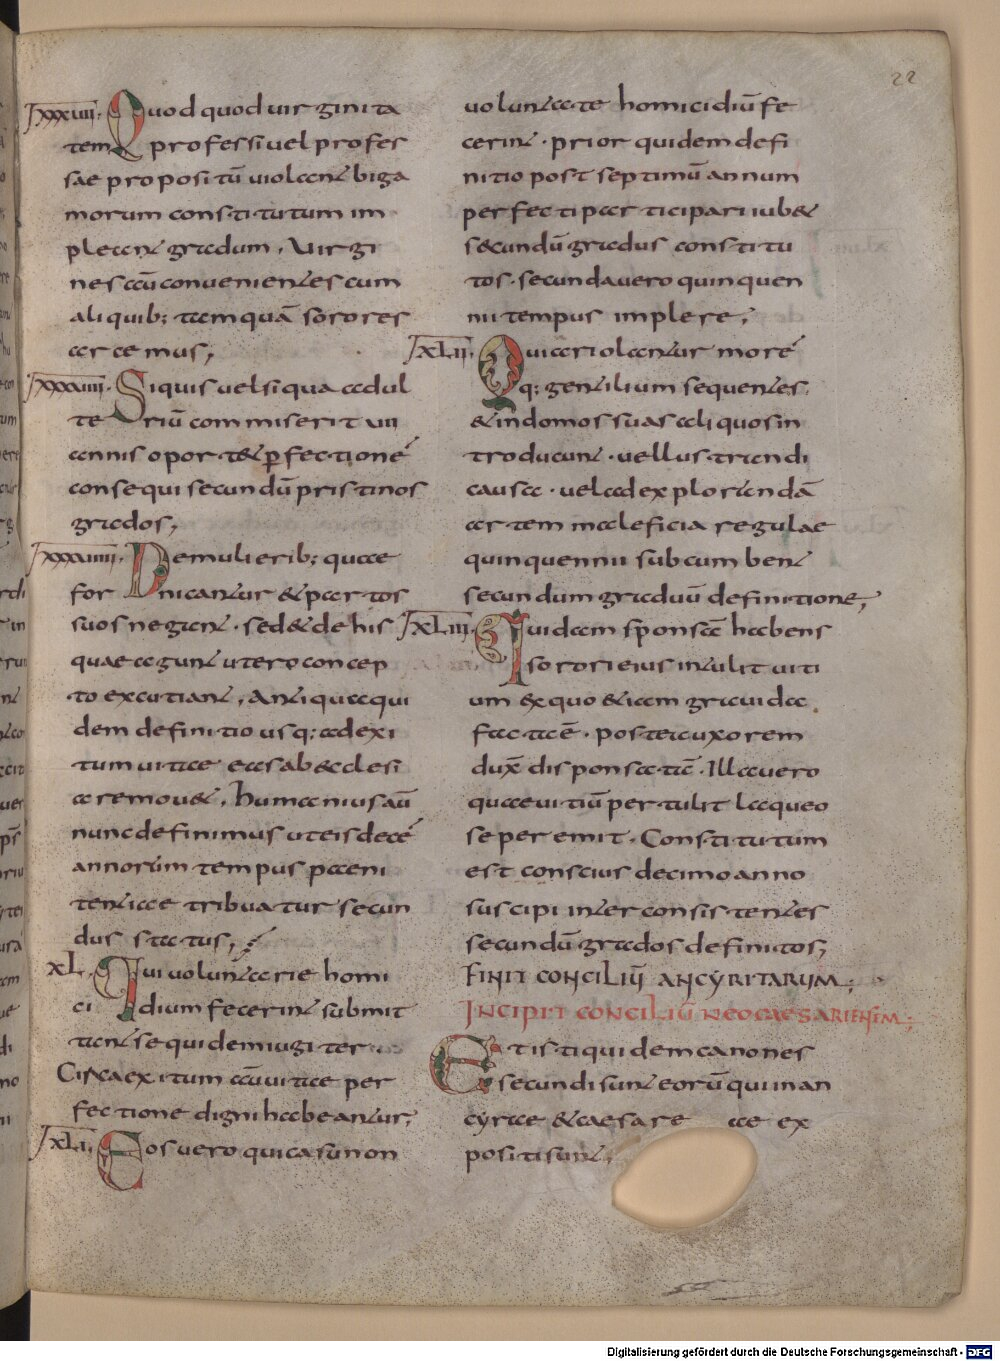 22
xxxvii. Quod quod virginita
tem professi vel profes
sae propositū violant biga
morum constitutum im
pleant gradum. Virgi
nes aū convenientes cum
aliquib; tamquā sorores
arcemus;
xxxviii. Si quis vel si qua adul
teriū commiserit vii
annis oportet ꝑfectionē
consequi secundū pristinos
grados;
xxxviiii. De mulierib; quae
fornicantur & partos
suos negant. sed & de his
quae agunt utero concep
to excutiant, Antiqua qui
dem definitio usq; ad exi
tum vitae eas ab &clesi
a remov&. humanius aū
nunc definimus ut eis decē
annorum tempus paeni
tentiae tribuatur secun
dus status;
xL. Qui voluntarie homi
cidium fecerint submit
tant se quidem iugiter
Circa exitum aūvitae per
fectione digni habeantur;
xLi. Eos vero qui casu non
voluntate homicidiū fe
cerint. prior quidem defi
nitio post septimū annum
perfecti participari iub&
s&cundū gradus constitu
tos. secunda vero quinquen
nii tempus implere;
xLii. Qui ariolantur morē
q; gentilium sequentes
& in domos suas aliquos in
troducunt. vel lustrandi
causa. vel ad explorandā
artem maleficia regulae
quinquennii subcumbent
secundum graduū definitione;
xLiii. Quidam sponsā habens
sorori eius intulit viti
um &x quo & iam gravida
facta ē. postea uxorem
duxͭ disponsatā. Illa vero
quae vitiū pertulit laqueo
se peremit. Constitutum
est conscius decimo anno
suscipi inter consistentes
secundū gradōs definitos;
FINIT CONCILIŪ ANCYRITARUM;
INCIPIT CONCILIŪ NEOCAESARIENSĒM;
Et isti quidem canones
secundi sunt eorū qui in an
cyra & caesarea ex
positi sunt;
Digitalisierung gefördert durch die Deutsche Forschungsgemeinschaft - DFG